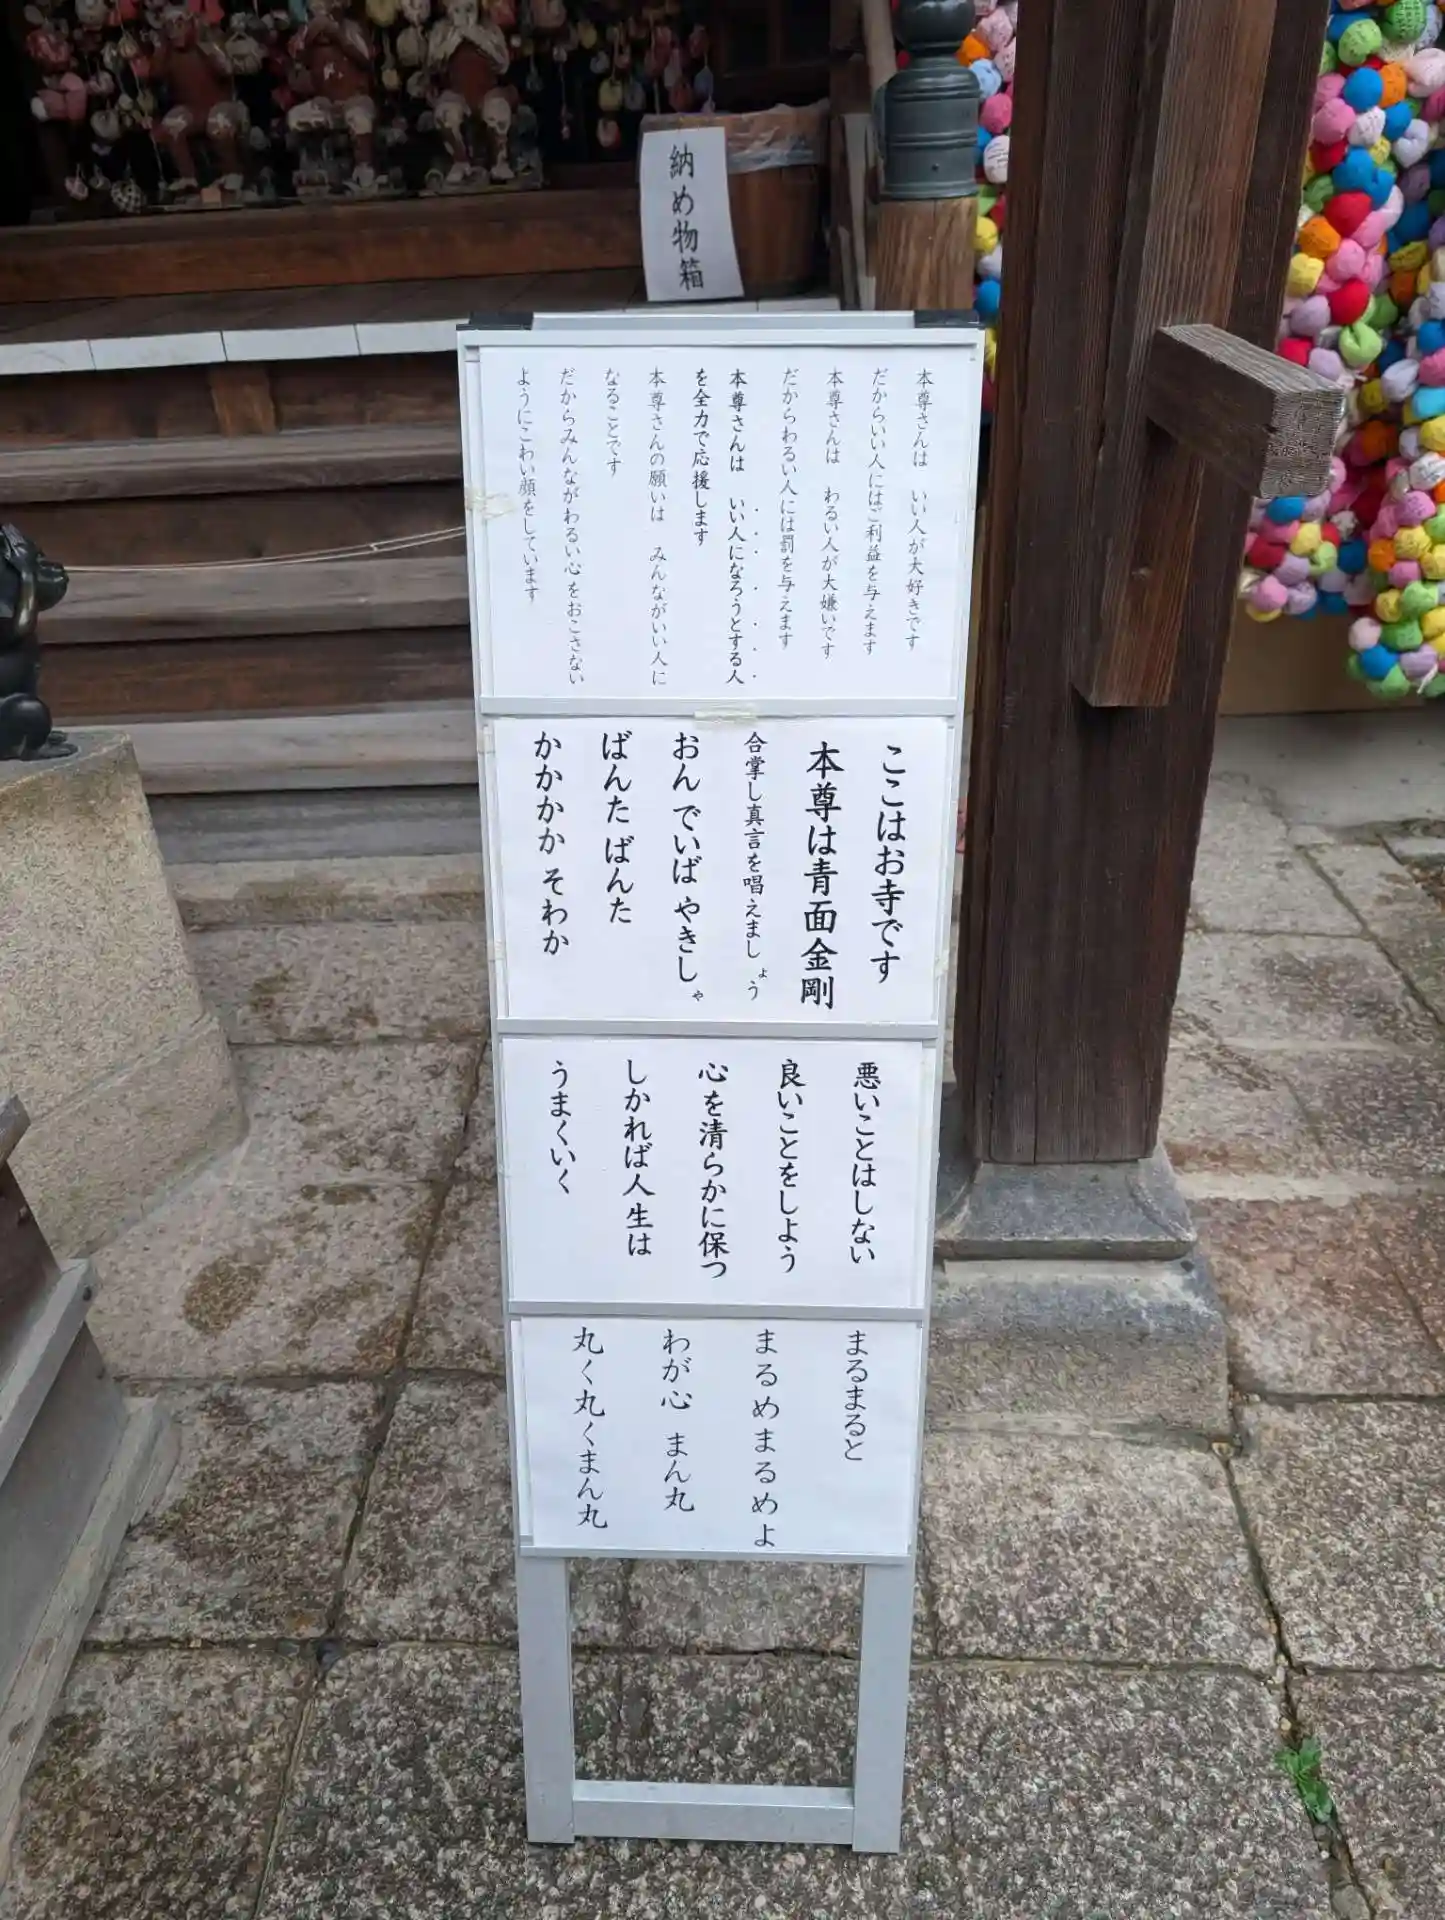 納め物箱
本尊さんは　いい人が大好きです
だからいい人にはご利益を与えます
本尊さんは　わるい人が大嫌いです
だからわるい人には罰を与えます
本尊さんは　いい人になろうとする人
を全力で応援します
本尊さんの願いは　みんながいい人に
なることです
だからみんながわるい心をおこさない
ようにこわい顔をしています
ここはお寺です
本尊は青面金剛
合掌し真言を唱えましょう
おん でいば やきしゃ
ばんた ばんた
かかかか そわか
悪いことはしない
良いことをしよう
心を清らかに保つ
しかれば人生は
うまくいく
まるまると
まるめまるめよ
わが心　まん丸
丸く丸くまん丸